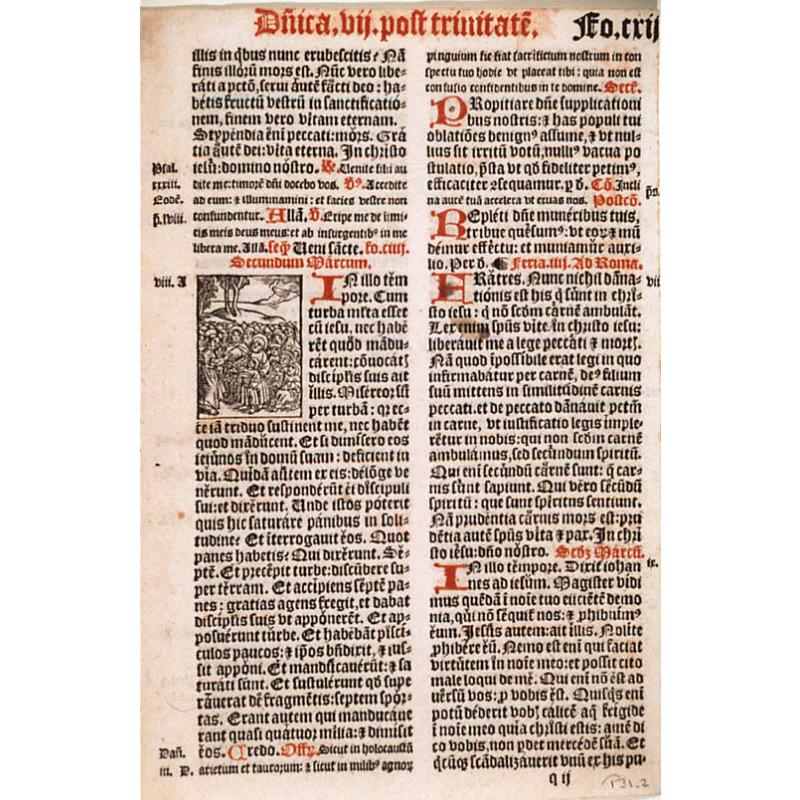 Dñica.vij.post trinitatē. Fo.cxij
illis in q̄bus nunc erubescitis? Nā
finis illorū mors est. Nūc vero libe-
rati a pctō, serui autē facti deo: ha-
betis fructū vestrū in sanctificatiō-
nem, finem vero vitam eternam.
Stypendia eni peccati: mors. Grā
tia autē dei: vita eterna. In christo
iesu: domino nostro. Venite filii au
Psal. xxxiii.
dite me: timorē dñi docebo vos. Accedite
Eodē.
ad eum: et illuminamini: et facies vestre non
p̄.lviii.
confundentur. Allā. Eripe me de inimi
cis meis deus meus: et ab insurgentibꝰ in me
libera me. Allā. seq̄ Ueni sācte. fo.ciiij.
Secundum Marcum.
viii. A
IN illo tēm
pore. Cum
turba mlta esset
cū iesu, nec habē
rēt quod mādu-
carent: cōuocatꝭ
discipłis suis ait
illis. Misereor sꝑ
per turbā: qꝛ ec-
ce iā triduo sustinent me, nec habēt
quod māducent. Et si dimisero eos
ieiunos in domū suam: deficient in
via. Quidā autem ex eis: delōge ve
nerunt. Et responderūt ei discipuli
sui: et dixerunt. Unde istos poterit
quis hic saturare panibus in soli-
tudine? Et īterrogauit eos. Quot
panes habetis? Qui dixerunt. Se-
ptē. Et precepit turbe: discūbere su-
per terram. Et accipiens septē pa-
nes: gratias agens fregit, et dabat
discipłis suis vt apponerēt. Et ap-
posuerunt turbe. Et habebāt pisci-
culos paucos: ⁊ ip̄os bñdixit, ⁊ ius-
sit apponi. Et manducauerūt: ⁊ sa
turati sunt. Et sustulerunt qd̄ supe
rauerat de fragmētis: septem spor-
tas. Erant autem qui manducaue
rant quasi quatuor milia: ⁊ dimisit
eos. Credo. Offꝫ. Sicut in holocaustū
Dañ. iii. D.
arietum et taurorum: ⁊ sicut in milibꝰ agnoꝝ
pinguium sic fiat sacrificium nostrum in con
spectu tuo hodie vt placeat tibi: quia non est
confusio confidentibus in te domine. Secr̄.
PRopitiare dñe supplicationi
bus nostris: ⁊ has populi tui
oblatiōes benignꝰ assume, ⁊ vt nul-
lius sit irritū votū, nulliꝰ vacua po
stulatio, p̄sta vt qd̄ fideliter petimꝰ,
efficaciter ↄsequamur. p̄ d̄. Cō. Incli
na aurē tuā accelera vt eruas nos. Postcō.
p̄s.
REpleti dñe muneribus tuis,
tribue quesumꝰ: vt eoꝝ ⁊ mū
demur effectu: et muniamur auxi-
lio. Per d̄. Feria.iiij. Ad Roma.
vii
FRatres. Nunc nichil dāna-
tionis est his q̄ sunt in chri-
sto iesu: q̄ nō scd̄m carnē ambulāt.
Lex enim spūs vite in christo iesu:
liberauit me a lege peccati ⁊ mortꝭ.
Nā quod īpossibile erat legi in quo
infirmabatur per carnē, deꝰ filium
suū mittens in similitudinē carnis
peccati, et de peccato dānauit pctm̄
in carne, vt iustificatio legis imple-
retur in nobis: qui non scd̄m carnē
ambulamus, sed secundum spiritū.
Qui eni secundū carnē sunt: q̄ car-
nis sunt sapiunt. Qui vero secūdū
spiritū: que sunt spiritus sentiunt.
Nā prudentia carnis mors est: pru
dētia autē spūs vita ⁊ pax. In chri
sto iesu: dño nostro. Scd̄ꝫ Marcū.
ix.
IN illo tēmpore. Dixit iohan
nes ad iesum. Magister vidi
mus quēdā ī noīe tuo eiiciētē demo
nia, qui nō sequit̄ nos: ⁊ ꝓhibuimꝰ
eum. Jesus autem: ait illis. Nolite
ꝓhibere eū. Nemo est eni qui faciat
virtutem in noīe meo: et possit cito
male loqui de me. Qui eni nō est ad
uersū vos: ꝓ vobis est. Quisqꝫ eni
potū dederit vobꝭ calicē aq̄ frigide
ī noīe meo quia christi estis: amē di
co vobis, non pdet mercedē suā. Et
q̄cūqꝫ scādalizauerit vnū ex his pu-
q ij
P31.2